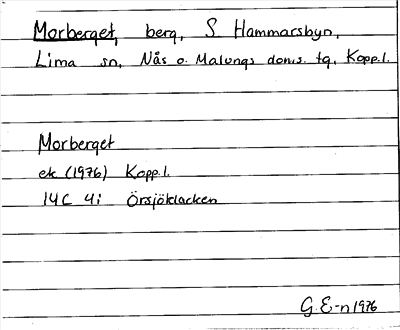 Morberget, berg, S Hammarsbyn,
Lima sn, Nås o. Malungs doms. tg, Kopp.l.
Morberget
ek (1976) Kopp.l.
14C 4i Örsjöklacken
G.E-n 1976